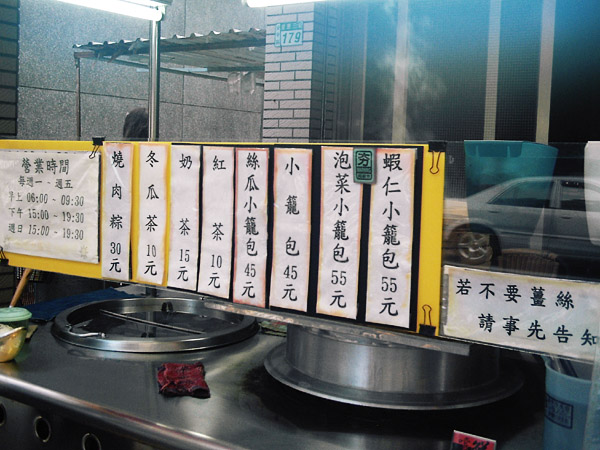 179
營業時間
每週一 - 週五
早上 06:00 ~ 09:30
下午 15:00 ~ 19:30
週日 15:00 ~ 19:30
燒肉粽 30元
冬瓜茶 10元
奶茶 15元
紅茶 10元
絲瓜小籠包 45元
小籠包 45元
泡菜小籠包 55元
蝦仁小籠包 55元
若不要薑絲
請事先告知